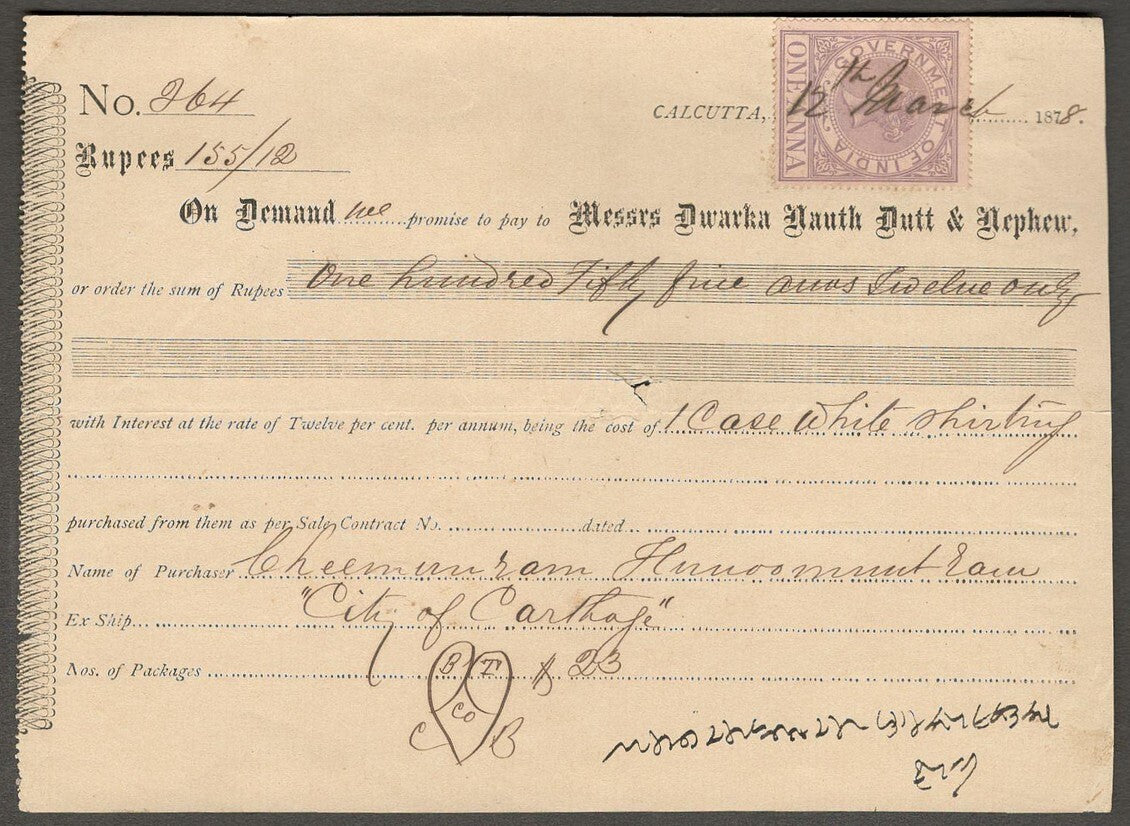 No. 264
CALCUTTA, 12th March 1878.
GOVERNMENT OF INDIA
ONE ANNA
Rupees 155/12
On Demand we promise to pay to Messrs Dwarka Nauth Dutt & Nephew,
or order the sum of Rupees One hundred Fifty five anas Twelve only
with Interest at the rate of Twelve per cent. per annum, being the cost of 1 Case White Shirting
purchased from them as per Sale Contract No. dated
Name of Purchaser Cheemun ram Hunoomunt ram
Ex Ship "City of Carthage"
Nos. of Packages B T 23
Co
C B